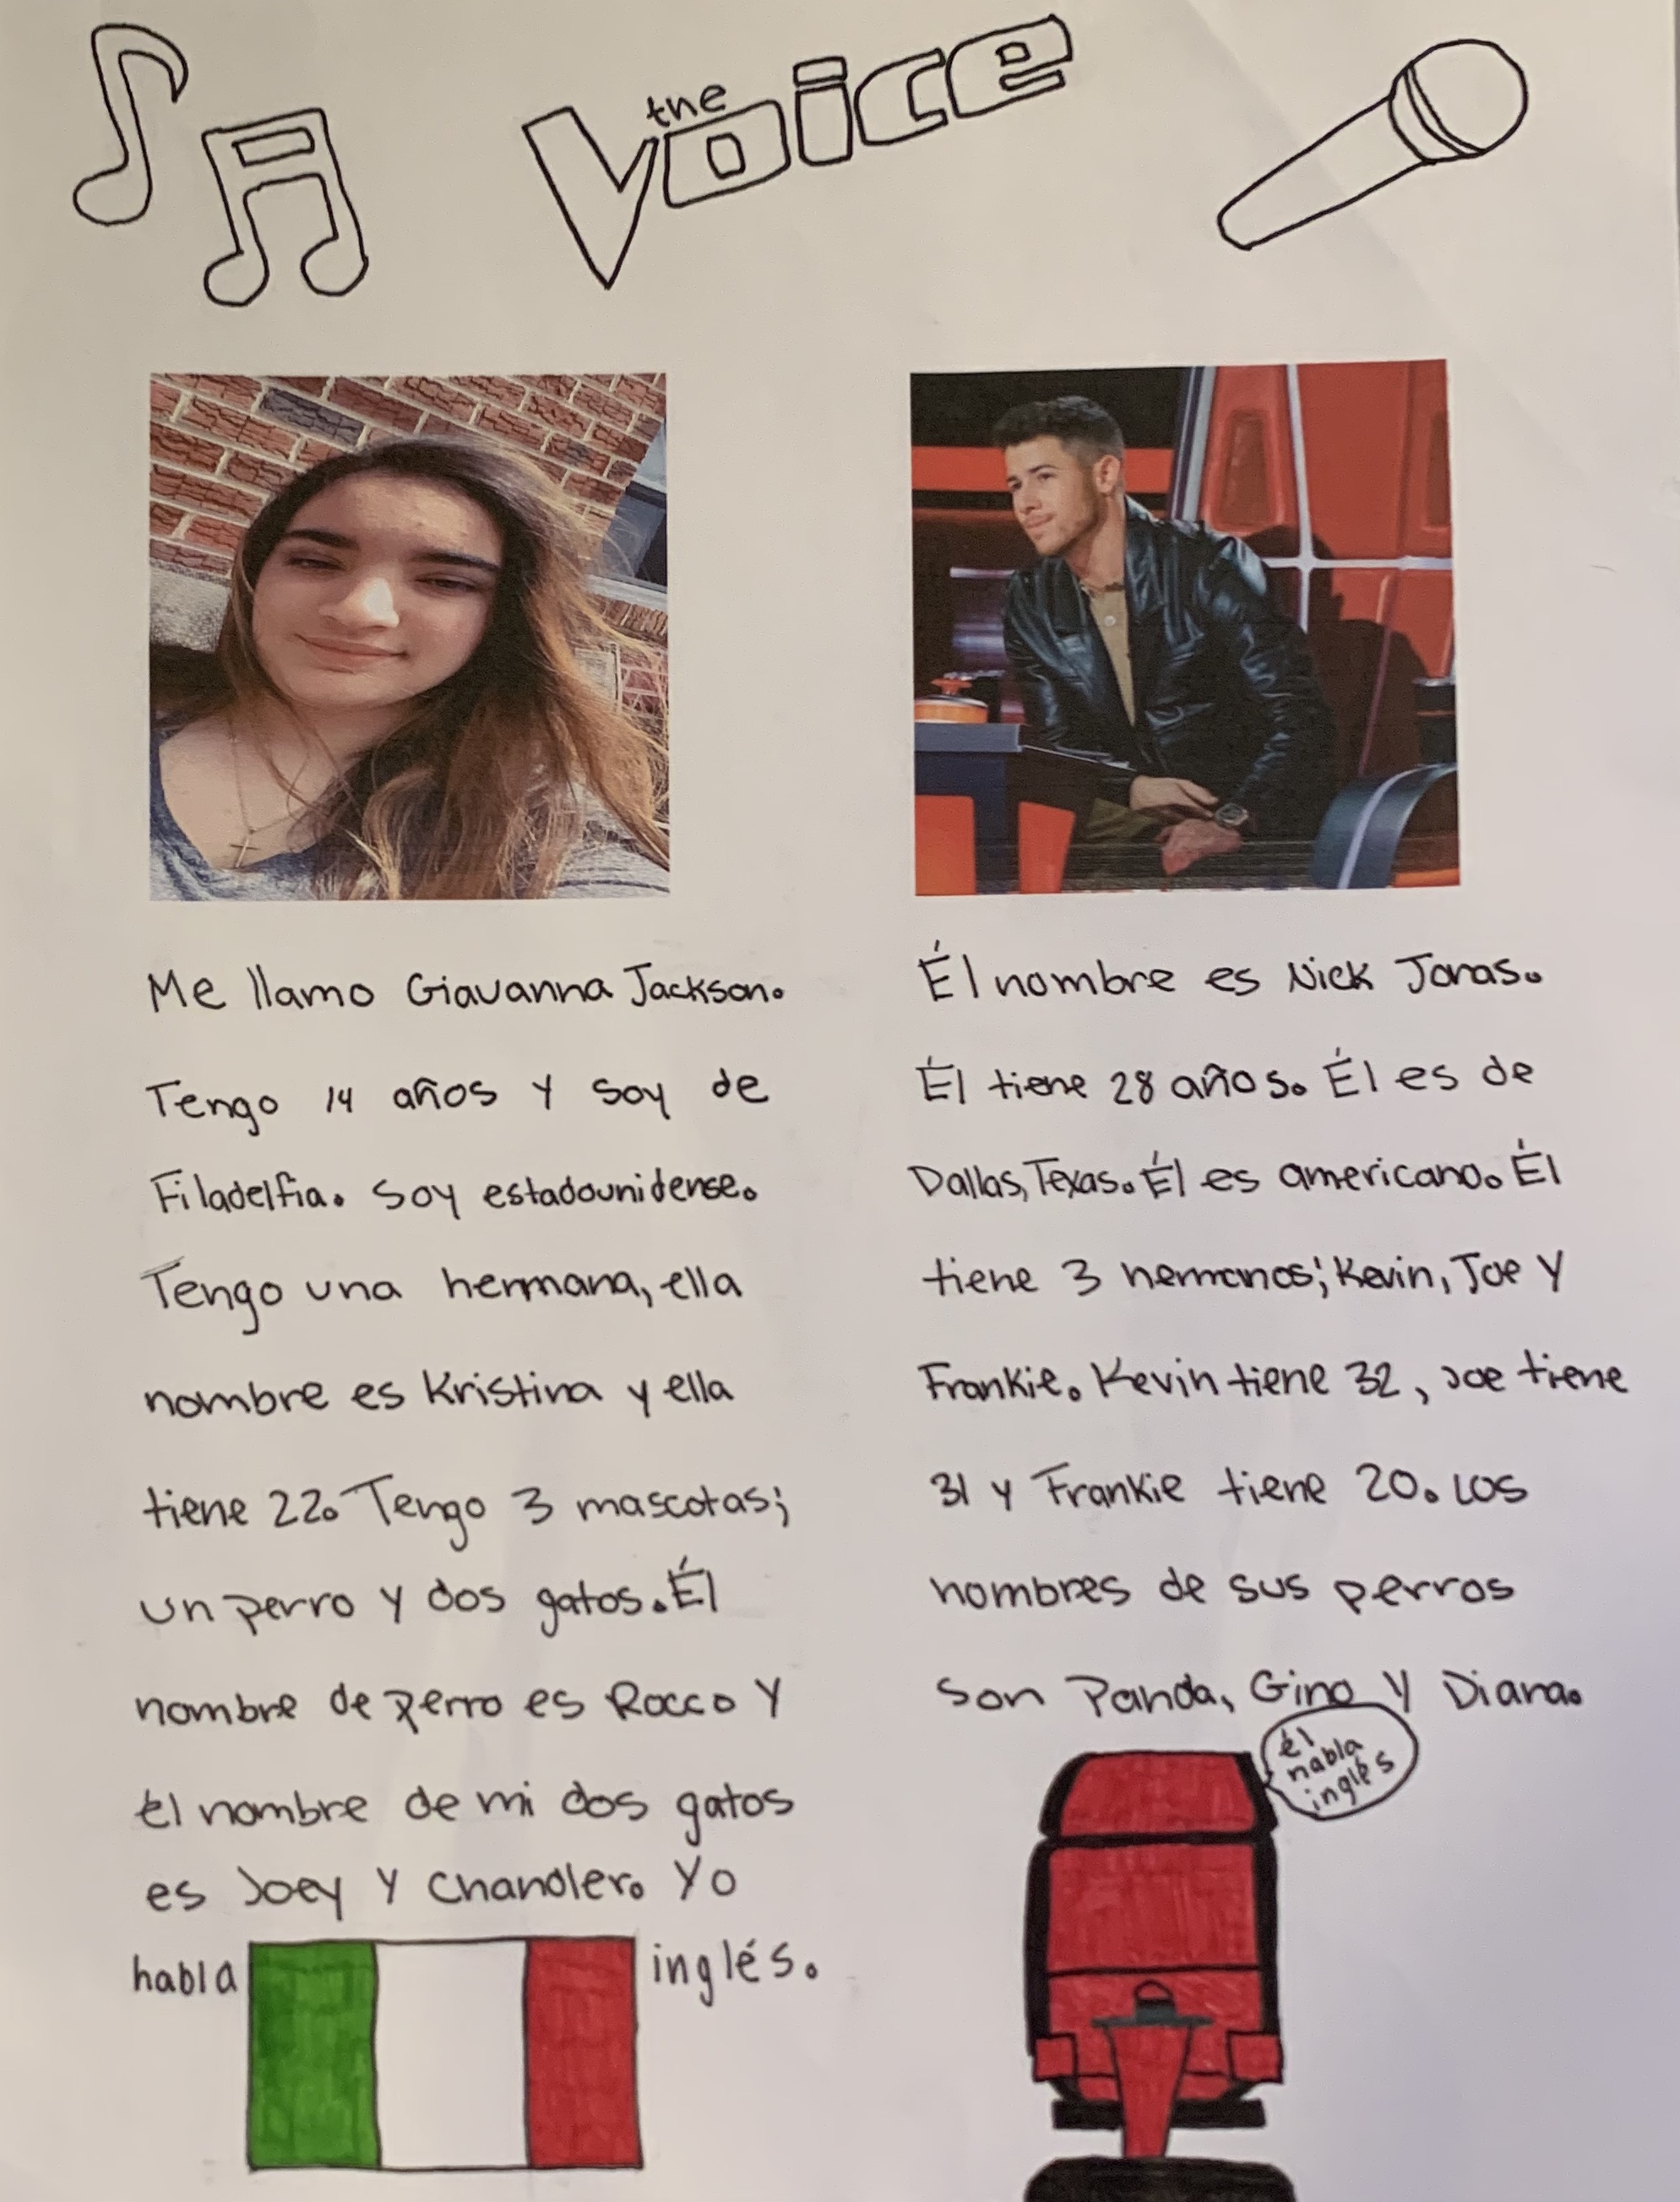 the
Voice
Me llamo Giavanna Jackson.
Tengo 14 años y soy de
Filadelfia. Soy estadounidense.
Tengo una hermana, ella
nombre es Kristina y ella
tiene 22. Tengo 3 mascotas;
un perro y dos gatos. Él
nombre de perro es Rocco y
él nombre de mi dos gatos
es Joey y Chandler. Yo
habla inglés.
Él nombre es Nick Jonas.
Él tiene 28 años. Él es de
Dallas, Texas. Él es americano. Él
tiene 3 hermanos; Kevin, Joe y
Frankie. Kevin tiene 32, Joe tiene
31 y Frankie tiene 20. Los
nombres de sus perros
son Panda, Gino y Diana.
él
habla
inglés